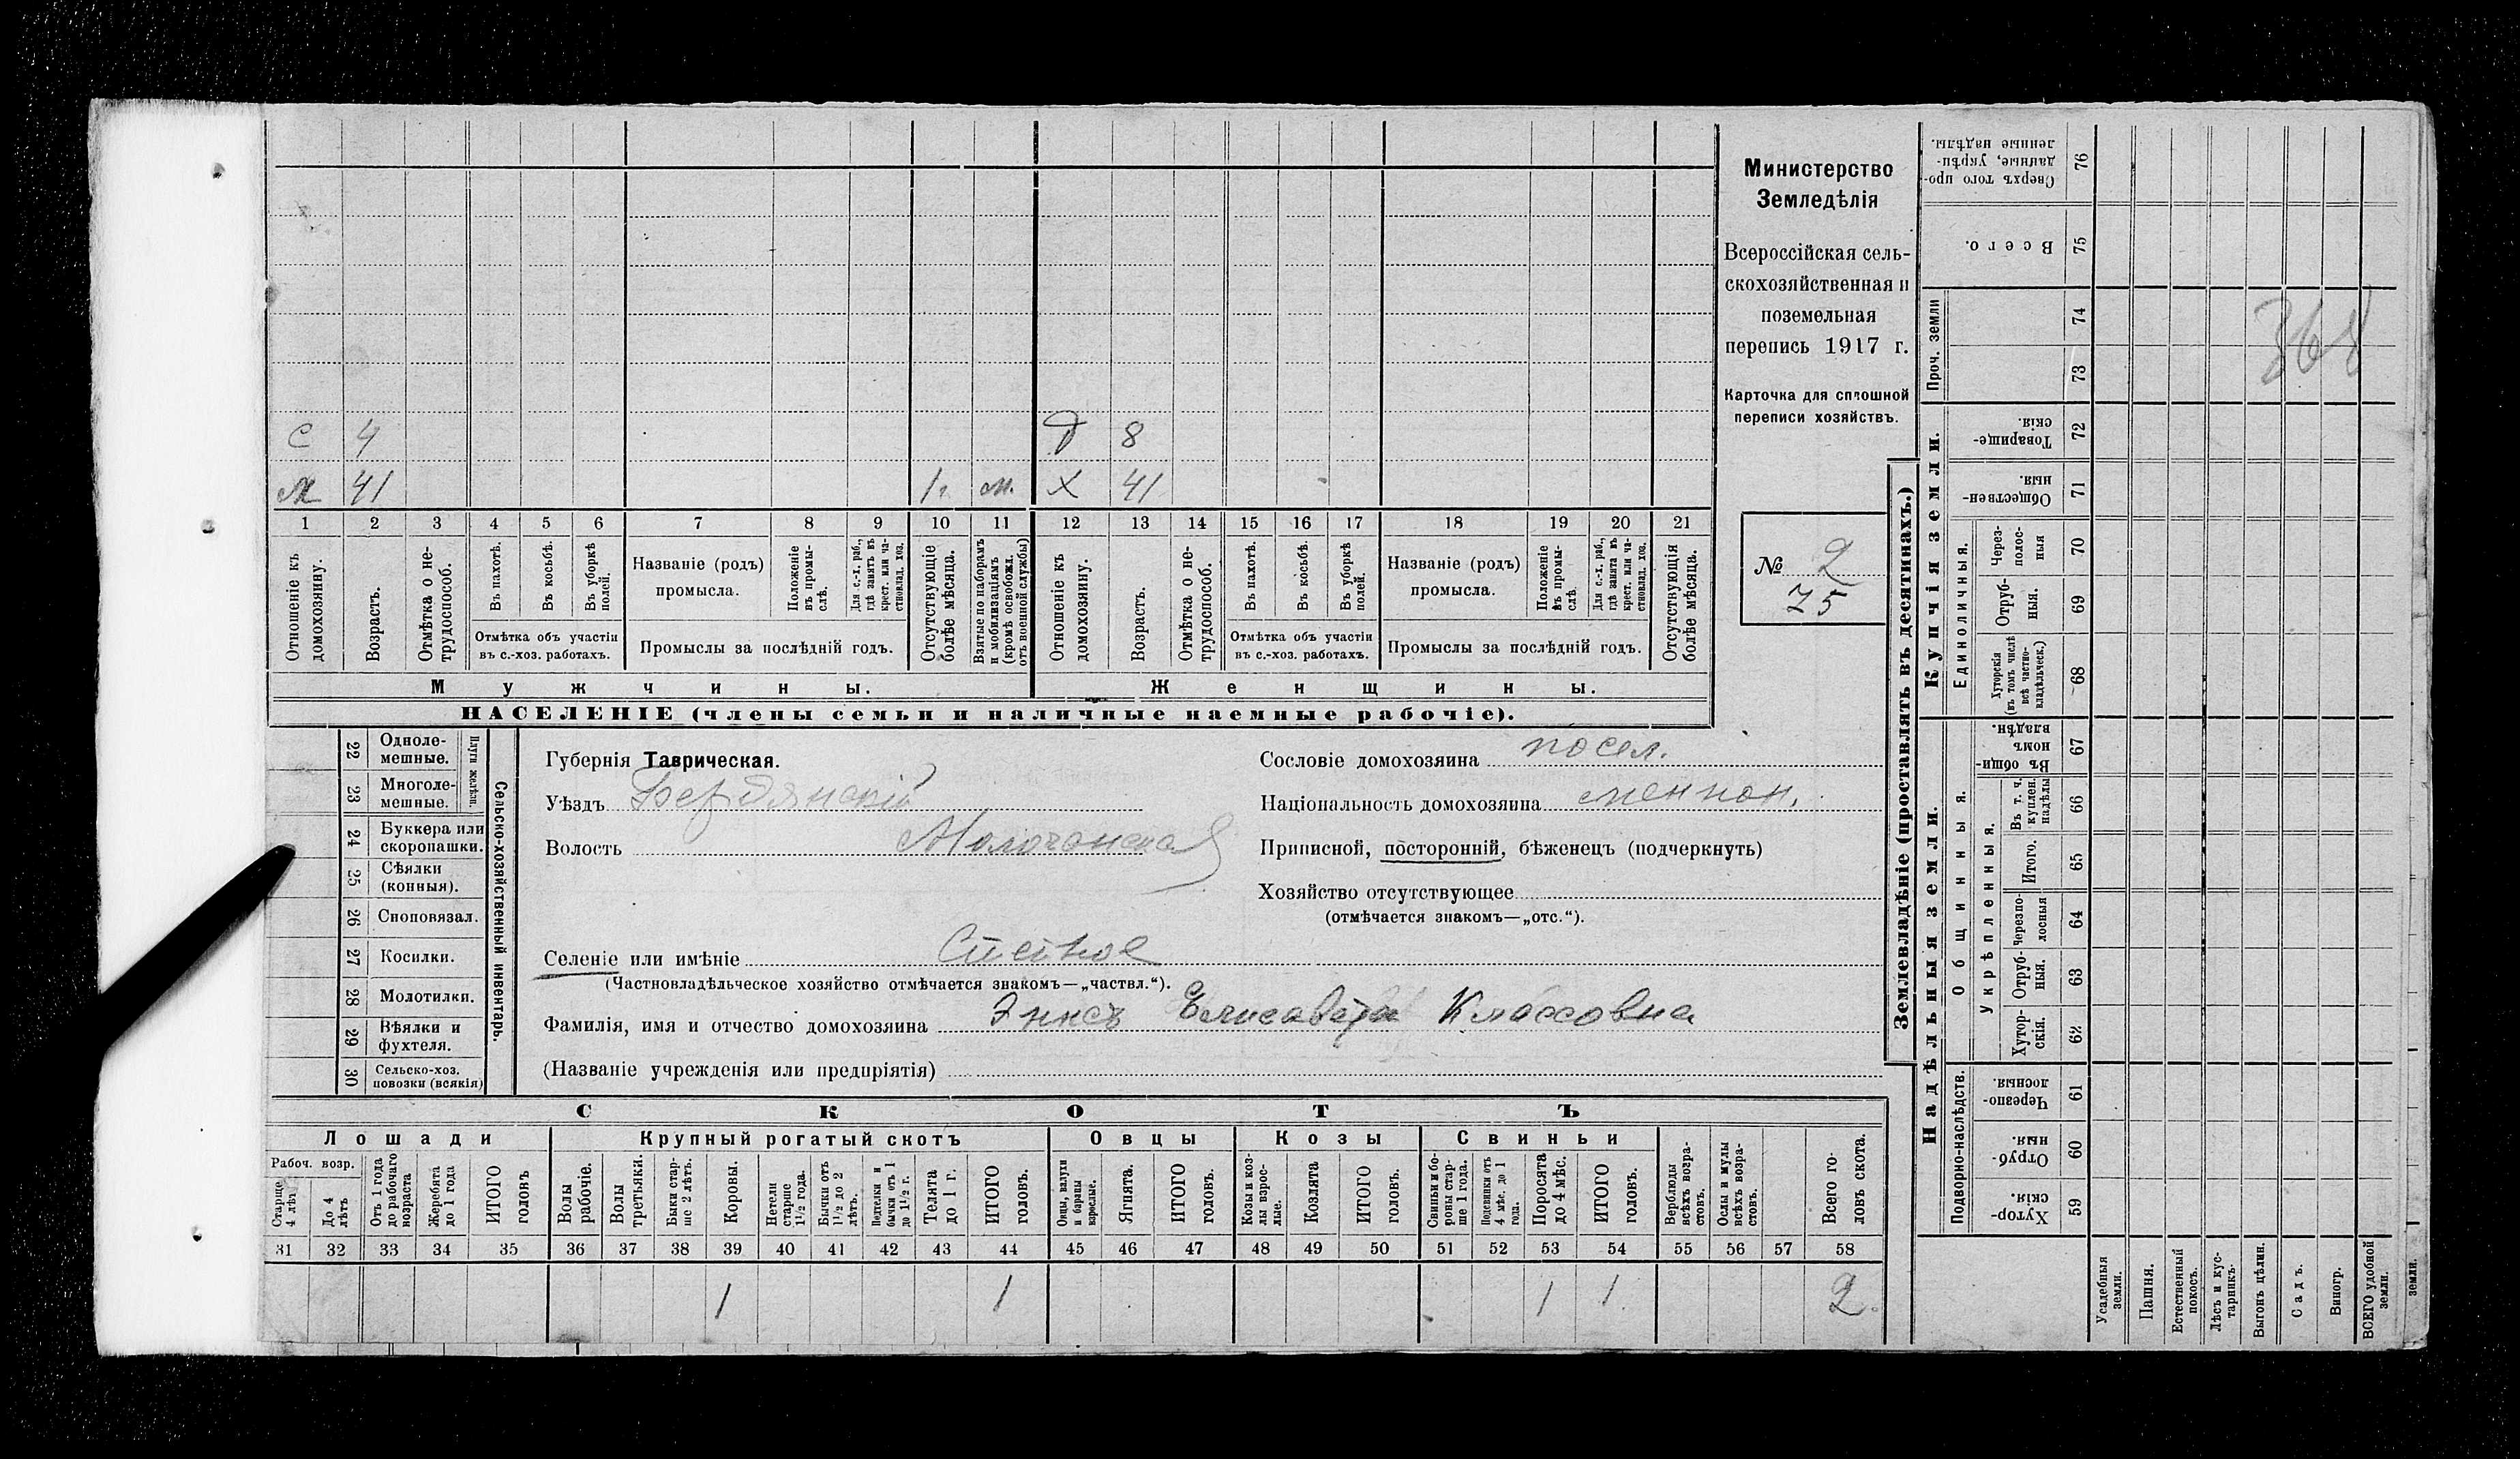 С 4 Д 8
М 41 1 г. м. Х 41
1 2 3 4 5 6 7 8 9 10 11 12 13 14 15 16 17 18 19 20 21
Отношеніе къ домохозяину.
Возрастъ.
Отмѣтка о не-трудоспособ.
Въ пахотѣ.
Въ косьбѣ.
Въ уборкѣ полей.
Отмѣтка объ участіи
въ с.-хоз. работахъ.
Названіе (родъ)
промысла.
Положеніе въ промы-слѣ.
Для с.-х. раб., гдѣ занятъ въ крест. или ча-стновлад. хоз.
Промыслы за послѣдній годъ.
Отсутствующіе болѣе мѣсяца.
Взятые по наборамъ и мобилизаціямъ (кромѣ освобожд. отъ военной службы)
Отношеніе къ домохозяину.
Возрастъ.
Отмѣтка о не-трудоспособ.
Въ пахотѣ.
Въ косьбѣ.
Въ уборкѣ полей.
Отмѣтка объ участіи
въ с.-хоз. работахъ.
Названіе (родъ)
промысла.
Положеніе въ промы-слѣ.
Для с.-х. раб., гдѣ занятъ въ крест. или ча-стновлад. хоз.
Промыслы за послѣдній годъ.
Отсутствующія болѣе мѣсяца.
Мужчины. Женщины.
НАСЕЛЕНІЕ (члены семьи и наличные наемные рабочіе).
Министерство
Земледѣлія
Всероссійская сель-
скохозяйственная и
поземельная
перепись 1917 г.
Карточка для сплошной
переписи хозяйствъ.
№ 2
75
Сельско-хозяйственный инвентарь.
Плуги желѣзн.
22 Одноле-мешные.
23 Многоле-мешные.
24 Буккера или скоропашки.
25 Сѣялки (конныя).
26 Сноповязал.
27 Косилки.
28 Молотилки.
29 Вѣялки и фухтеля.
30 Сельско-хоз. повозки (всякія)
Губернія Таврическая.
Уѣздъ Бердянскій
Волость Молочанская
Селеніе или имѣніе
(Частновладѣльческое хозяйство отмѣчается знакомъ—„частвл.“).
Фамилія, имя и отчество домохозяина Эннсъ Елисавета Классовна
(Названіе учрежденія или предпріятія)
Сословіе домохозяина посел.
Національность домохозяина меннон.
Приписной, посторонній, бѣженецъ (подчеркнуть)
Хозяйство отсутствующее
(отмѣчается знакомъ—„отс.“).
СКОТЪ
Лошади Крупный рогатый скотъ Овцы Козы Свиньи
Рабоч. возр.
Старше 4 лѣтъ
До 4 лѣтъ
Отъ 1 года до рабочаго возраста
Жеребята до 1 года
ИТОГО головъ
Волы рабочіе.
Волы третьяки.
Быки стар-ше 2 лѣтъ.
Коровы.
Нетели старше 1½ года.
Бычки отъ 1½ до 2 лѣтъ.
Подтелки и бычки отъ 1 до 1½ г.
Телята до 1 г.
ИТОГО головъ.
Овцы, валухи и бараны взрослые.
Ягнята.
ИТОГО головъ.
Козы и коз-лы взрос-лые.
Козлята
ИТОГО головъ.
Свиньи и бо-ровы стар-ше 1 года.
Подсвинки отъ 4 мѣс. до 1 года.
Поросята до 4 мѣс.
ИТОГО головъ.
Верблюды всѣхъ возра-стовъ.
Ослы и мулы всѣхъ возра-стовъ.
Всего го-ловъ скота.
31 32 33 34 35 36 37 38 39 40 41 42 43 44 45 46 47 48 49 50 51 52 53 54 55 56 57 58
1 1 1 1 2
Землевладѣніе (проставлять въ десятинахъ.)
Надѣльныя земли.
Купчія земли.
Проч. земли
Подворно-наслѣдств.
Общинныя.
Укрѣпленныя.
Единоличныя.
Сверхъ того про-данные, укрѣп-ленные надѣлы. 76
Всего. 75
74
73
Товарище-скія. 72
Обществен-ныя. 71
Через-полос-ныя 70
Отруб-ныя. 69
Хуторскія (въ томъ числѣ всѣ частно-владѣльческ.) 68
Въ общин-номъ владѣн. 67
Въ т. ч. куплен. надѣлы 66
Итого. 65
Черезпо-лосныя 64
Отруб-ныя. 63
Хутор-скія. 62
Черезпо-лосныя. 61
Отруб-ныя. 60
Хутор-скія. 59
Усадебныя земли.
Пашня.
Естественный покосъ.
Лѣсъ и кус-тарникъ.
Выгонъ цѣлин.
Садъ.
Виногр.
ВСЕГО удобной земли.
земли.